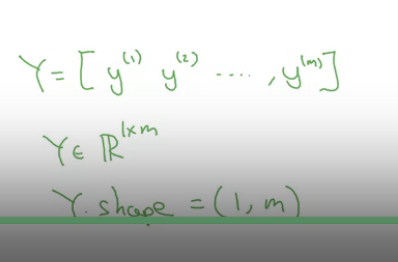 Y = [ y⁽¹⁾ y⁽²⁾ ...., y⁽ᵐ⁾]
Y ∈ ℝ^{1×m}
Y.shape = (1, m)